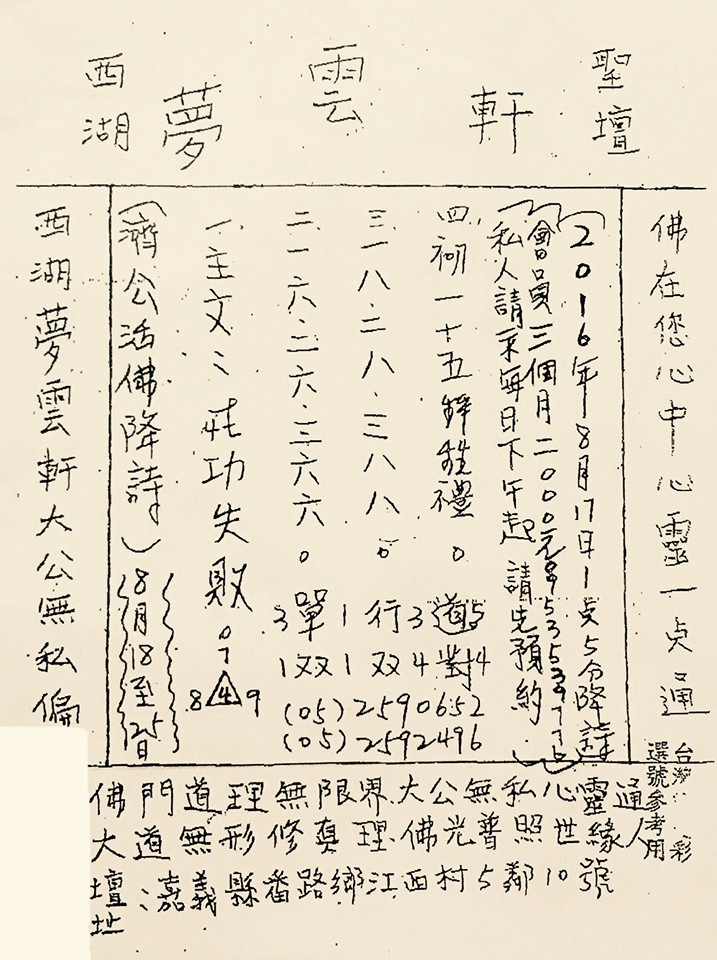 西湖 夢雲軒 聖壇
佛在您心中心靈一点通
(2016年8月17日1点5分降詩)
(會員三個月二000元
(私人請來每日下午起請先預約)
四、初一十五 禮。
三、一八.二八.三八八。
二、一六.二六.三六六。
一、主文: 功失敗。
(濟公活佛降詩)
8月18至25日
西湖夢雲軒大公無私偏
3單1行3道5
1双1双4對4
(05)2590652
(05)2592496
0
7
8 4 9
台 彩
選號參考用
佛門道理無限界大公無私心靈通
大道無形修真理佛光普照世緣人
壇址:嘉義縣番路鄉江西村5鄰10號